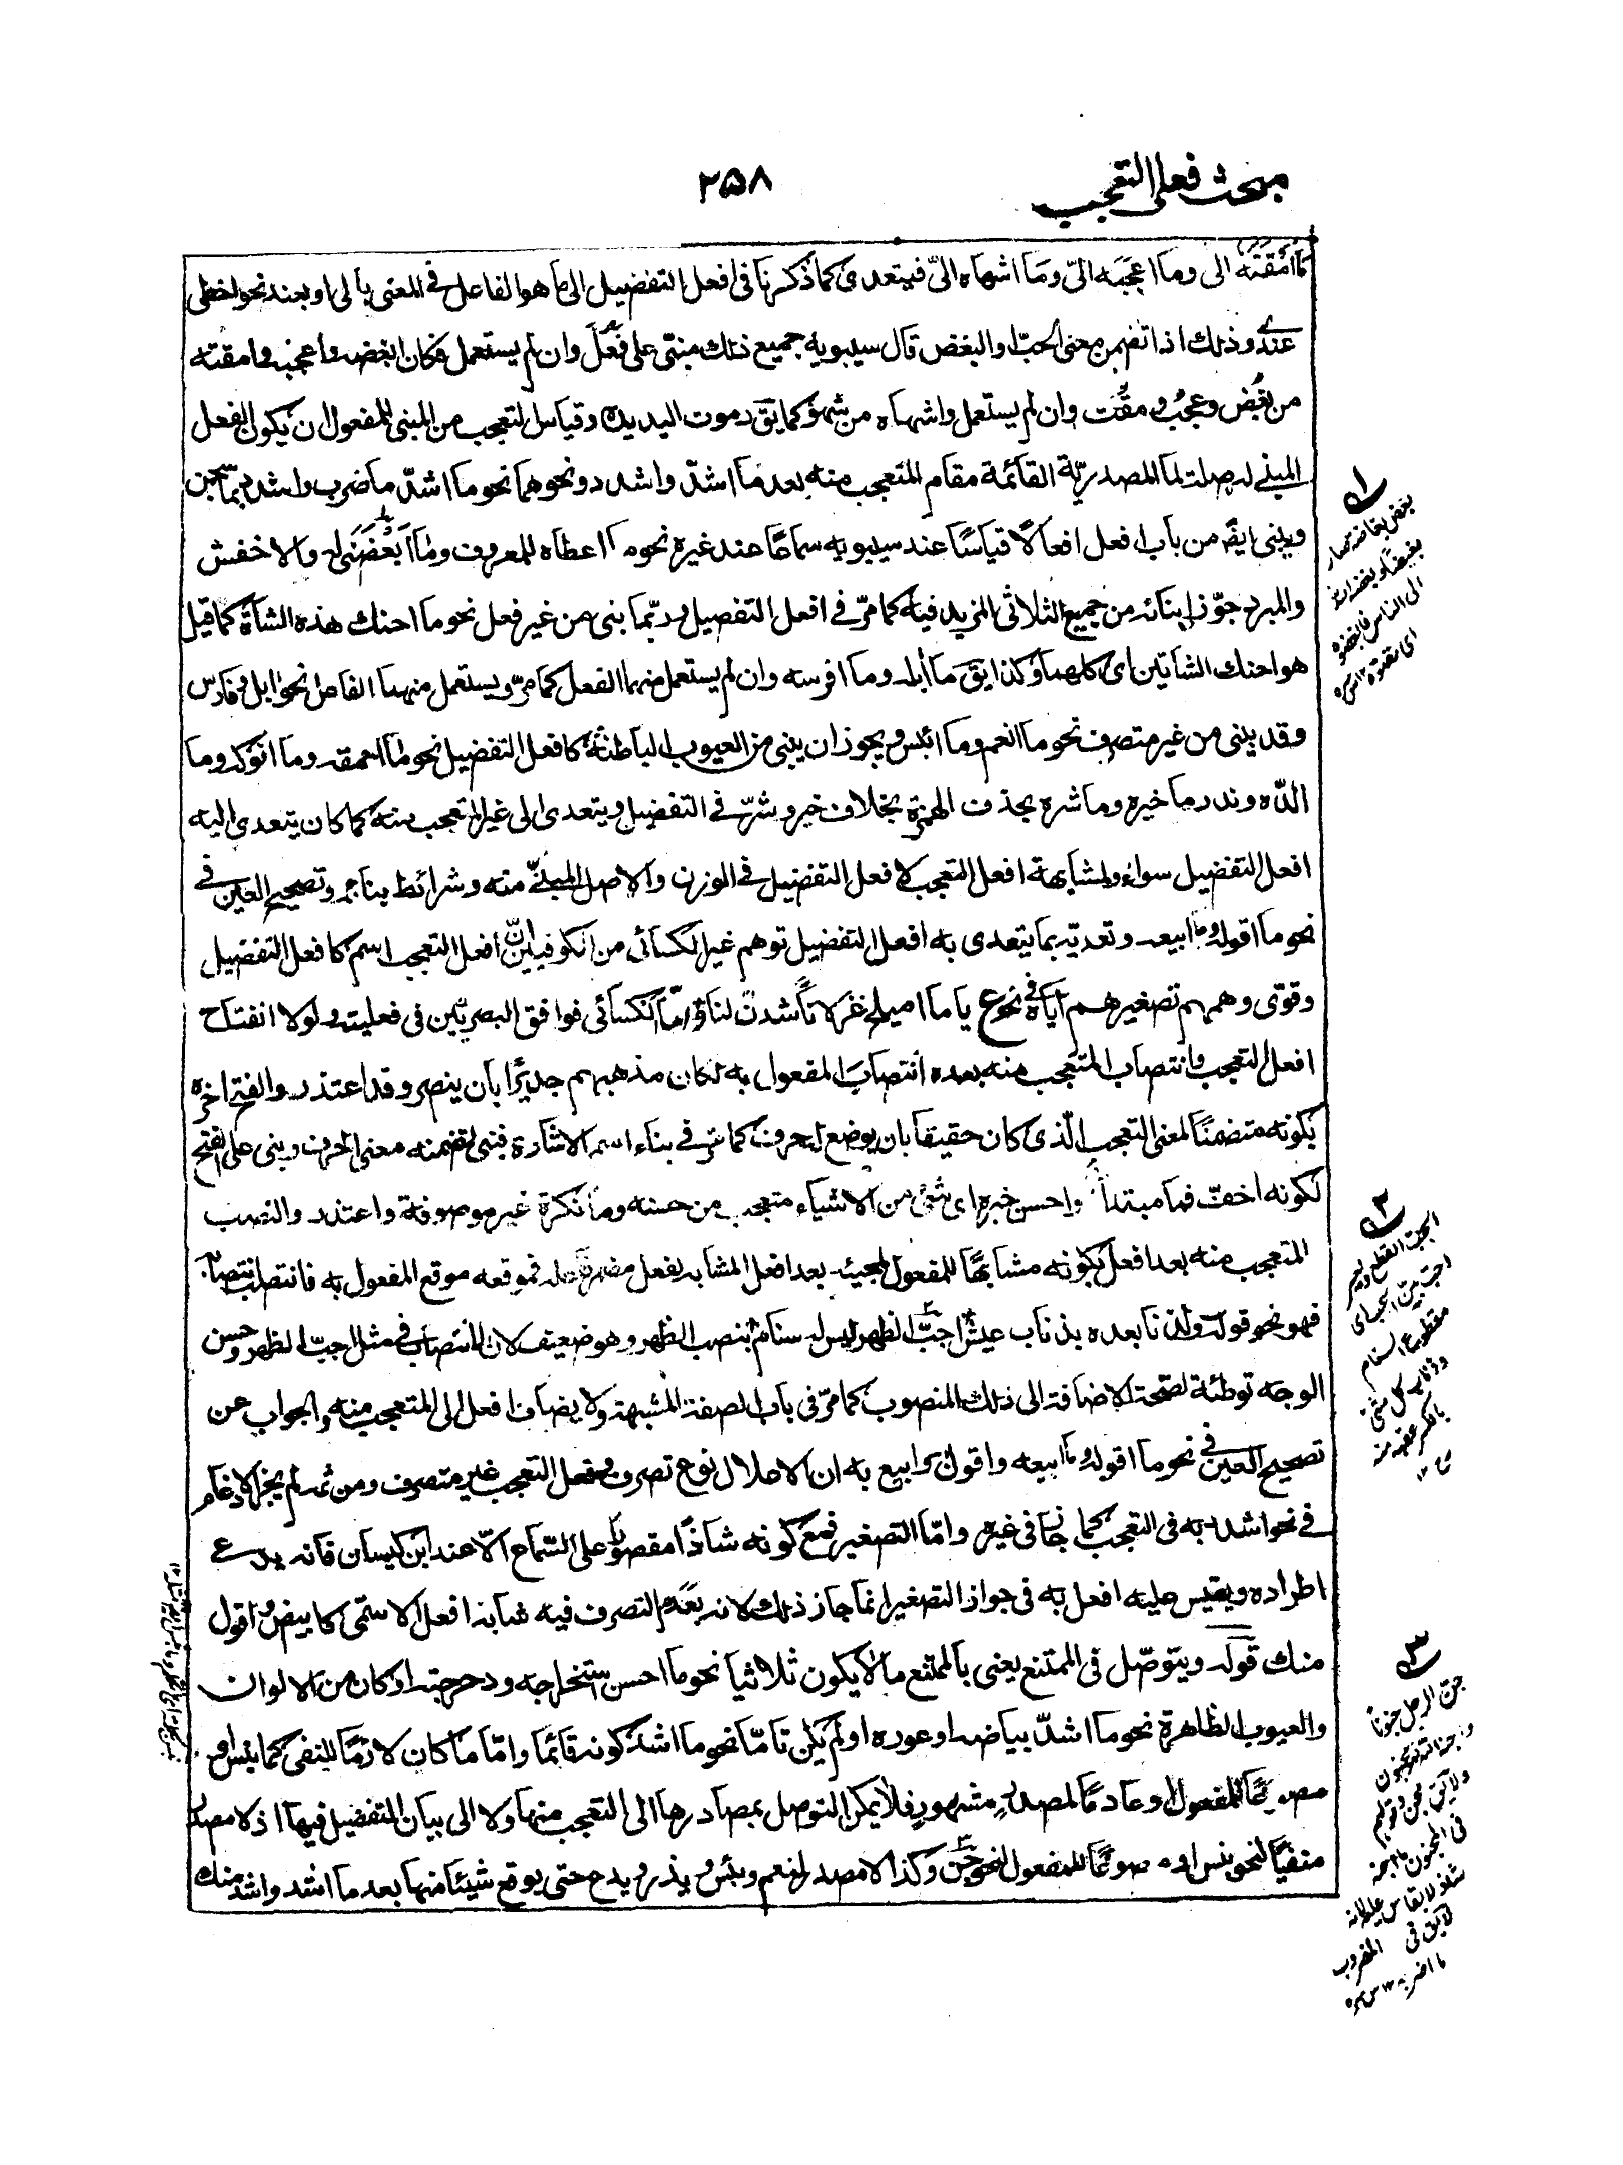 مبحث فعلی التعجب
۲۵۸
ما امقته الی وما اعجبه الیّ وما اشهاه الیّ فیتعدی کما ذکرنا فی افعل التفضیل الی ما هو الفاعل فی المعنی بالی او بعند نحو احظی
عندی وذلک اذا تضمن معنی الحبّ او البغض قال سیبویه جمیع ذلک مبنیّ علی فَعُلَ وان لم یستعمل فکان ابغضه واعجبه وامقته
من بغُض وعجُب ومقُت وان لم یستعمل واشهاه من شهُو کما یقَ رموت الید یده وقیاس التعجب من المبنی للمفعول ان یکون الفعل
المبنی له صلة لما المصدریّة القائمة مقام المتعجب منه بعد ما اشدّ واشدد ونحوهما نحو ما اشدّ ما ضرب واشدد بما سجن
ویبنی ایضً من باب افعل افعالًا قیاسًا عند سیبویه سماعًا عند غیره نحو ما اعطاه للمعروف وما ابغضنی له والاخفش
والمبرد جوّزا بنائه من جمیع الثلاثی المزید فیه کما مرّ فی افعل التفضیل وربّما بنی من غیر فعل نحو ما احنک هذه الشاة کما قیل
هو احنک الشاتین ای آکلهما وکذا یقَ ما أبله وما افرسه وان لم یستعمل منهما الفعل کما مرّ ویستعمل منهما الفاعل نحو ابل وفارس
وقد یبنی من غیر متصرف نحو ما انعم وما ابئس ویجوز ان یبنی من العیوب الباطنة کافعل التفضیل نحو ما احمقه وما انوکه وما
الدّه وندر ما خیره وما شره بحذف الهمزة بخلاف خیر وشرّ فی التفضیل ویتعدی الی غیر المتعجب منه کما کان یتعدی الیه
افعل التفضیل سواء ولمشابهة افعل التعجب لافعل التفضیل فی الوزن والاصل المبنیّ منه وشرائط بنائه وتصحیح العین فی
نحو ما اقوله وما ابیعه وتعدیّه بما یتعدی به افعل التفضیل توهم غیر الکسائی من الکوفیین أنّ افعل التعجب اسم کافعل التفضیل
وقوّی وهمهم تصغیرهم ایاه فی نحو ع یا ما امیلح غزلانًا شدنّ لنا وامّا الکسائی فوافق البصریّین فی فعلیته ولولا انفتاح
افعل التعجب وانتصاب المتعجب منه بعده انتصابَ المفعول به لکان مذهبهم جدیرًا بان ینصر وقد اعتذروا لفتح اخره
بکونه متضمنًا لمعنی التعجب الّذی کان حقیقا بان یوضع له حرف کما مرّ فی بناء اسم الاشارة فبنی لتضمنه معنی الحرف وبنی علی الفتح
لکونه اخفّ فما مبتدأ واحسن خبره ای شئ من الاشیاء متعجب من حسنه وما نکرة غیر موصوفة واعتذروا لنصب
المتعجب منه بعد افعل بکونه مشابهًا للمفعول لمجیئه بعد افعل المشابه لفعل فموقعه موقع المفعول به فانتصب انتصابه
فهو نحو قوله ونأخذ بعده بذناب عیش اجبّ الظهر لیس له سنام بنصب الظهر وهو ضعیف لان النصب فی مثل اجبّ الظهر وحسن
الوجه توطئة لصحة الاضافة الی ذلک المنصوب کما مرّ فی باب الصفة المشبهة ولا یضاف افعل الی المتعجب منه والجواب عن
تصحیح العین فی نحو ما اقوله وما ابیعه واقول وابیع به ان الاعلال نوع تصرف وفعل التعجب غیر متصرف ومن ثمه لم یجز الادغام
فی نحو اشدد به فی التعجب کما جاز فی غیره وامّا التصغیر فمع کونه شاذًا مقصورًا علی السّماع الّا عند ابن کیسان فانه یدعی
اطراده ویقیس علیه افعل به فی جواز التصغیر انما جاز ذلک لانه بعدم التصرف فیه شابه افعل الاسمّی کابیض واقول
منک قوله ویتوصّل فی الممتنع یعنی بالممتنع ما لا یکون ثلاثیا نحو ما احسن استخراجه ودحرجته او کان من الالوان
والعیوب الظاهرة نحو ما اشدّ بیاضه او عوره او لم یکن تامّا نحو ما اشدّ کونه قائما وامّا ما کان لازمًا للنفی کما نبس او
للمفعول او عادمًا لمصدر مشهور فلا یمکن التوصل بمصادرها الی التعجب منها ولا الی بیان التفضیل فیها اذ لا مصدر
منفیًا لنحو نبس او مصوغًا للمفعول لنحو جنّ وکذا لا مصدر لنعم وبئس ویذر ویدع حتی یوقع شیئا منها بعد ما اشد واشد منک
۱
بغض بغاضة صار
بغیضا وبغضه الله
الی الناس فابغضوه
ای مقتوه
۲
الجبّ القطع
اجبّ بین الجبب ای
مقطوع السنام
کل شئ
بالکسر عقبه
۳
جنّ الرجل جنونا
واجنه الله فهو مجنون
ولا تقل مجن وقولهم
فی المجنون ما اجنه
شاذ لا یقاس علیه لانه
لا یقَ فی المضروب
ما اضربه